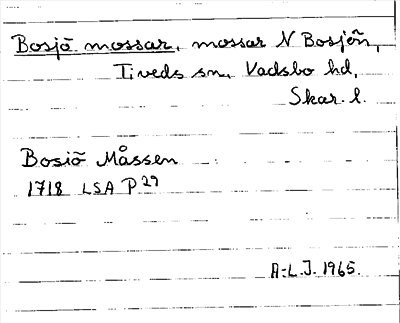 Bosjö mossar, mossar N Bosjön,
Tiveds sn, Vadsbo hd,
Skar. l.
Bosiö Måssen
1718 LSA P 29
A.L.J. 1965.